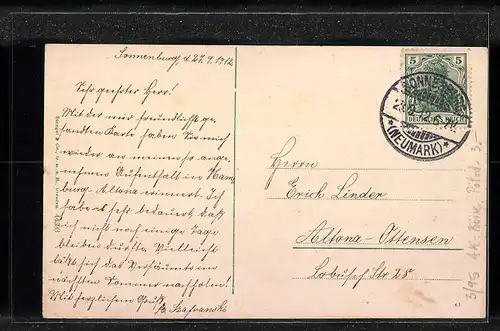 Sonnenburg, d. 27.9.1912
Sehr geehrter Herr!
Mit der mir freundlichst ge-
sandten Karte haben Sie mich
wieder an meinen so ange-
nehmen Aufenthalt in Ham-
burg-Altona erinnert. Ich
habe es sehr bedauert, daß ich
nicht noch einige Tage
bleiben durfte. Vielleicht
läßt sich das Versäumte im
nächsten Sommer nachholen!
Mit herzlichem Gruß
Szafranski
5 5
DEUTSCHES REICH
SONNENBURG
*(NEUMARK)*
Herrn
Erich Linder
Altona-Ottensen
Lobusch Str 25
3/95
3.-